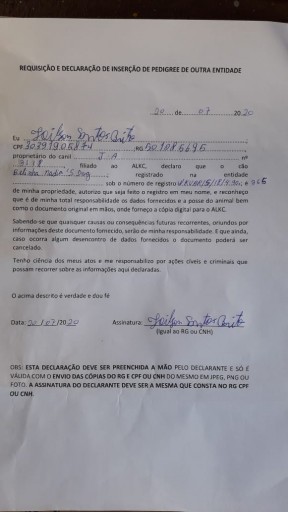 REQUISIÇÃO E DECLARAÇÃO DE INSERÇÃO DE PEDIGREE DE OUTRA ENTIDADE
30 de 07 2020
Eu
CPF , RG
proprietário do canil J A nº
filiado ao ALKC, declaro que o cão
registrado na entidade
sob o número de registro , é
de minha propriedade, autorizo que seja feito o registro em meu nome, e reconheço
que é de minha total responsabilidade os dados fornecidos e a posse do animal bem
como o documento original em mãos, onde forneço a cópia digital para o ALKC.
Sabendo-se que quaisquer causas ou consequências futuras recorrentes, oriundos por
informações deste documento fornecido, serão de minha responsabilidade. E que ainda,
caso ocorra algum desencontro de dados fornecidos o documento poderá ser
cancelado.
Tenho ciência dos meus atos e me responsabilizo por ações cíveis e criminais que
possam recorrer as informações aqui declaradas.
O acima descrito é verdade e dou fé
Data: 30/07/2020 Assinatura:
(Igual ao RG ou CNH)
OBS: ESTA DECLARAÇÃO DEVE SER PREENCHIDA A MÃO PELO DECLARANTE E SÓ É
VÁLIDA COM O ENVIO DAS CÓPIAS DO RG E CPF OU CNH DO MESMO EM JPEG, PNG OU
FOTO. A ASSINATURA DO DECLARANTE DEVE SER A MESMA QUE CONSTA NO RG CPF
OU CNH.